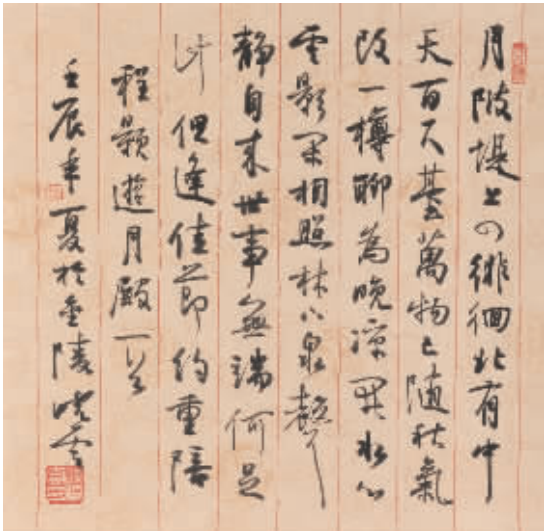 月陂堤上四徘徊北有中
天百尺臺萬物已隨秋氣
改一樽聊為晚涼開水心
雲影閑相照林下泉聲
靜自來世事無端何足
計但逢佳節約重陪
程顥遊月一首
壬辰年夏於金陵曉雲